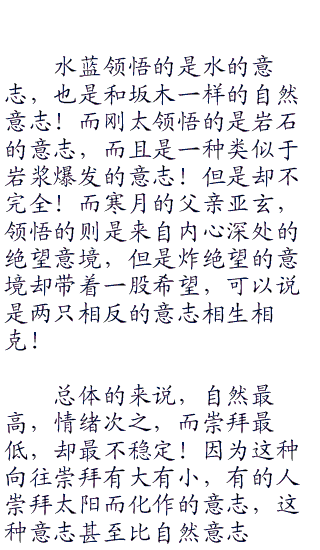 水蓝领悟的是水的意
志，也是和坂木一样的自然
意志！而刚太领悟的是岩石
的意志，而且是一种类似于
岩浆爆发的意志！但是却不
完全！而寒月的父亲亚玄，
领悟的则是来自内心深处的
绝望意境，但是炸绝望的意
境却带着一股希望，可以说
是两只相反的意志相生相
克！
总体的来说，自然最
高，情绪次之，而崇拜最
低，却最不稳定！因为这种
向往崇拜有大有小，有的人
崇拜太阳而化作的意志，这
种意志甚至比自然意志